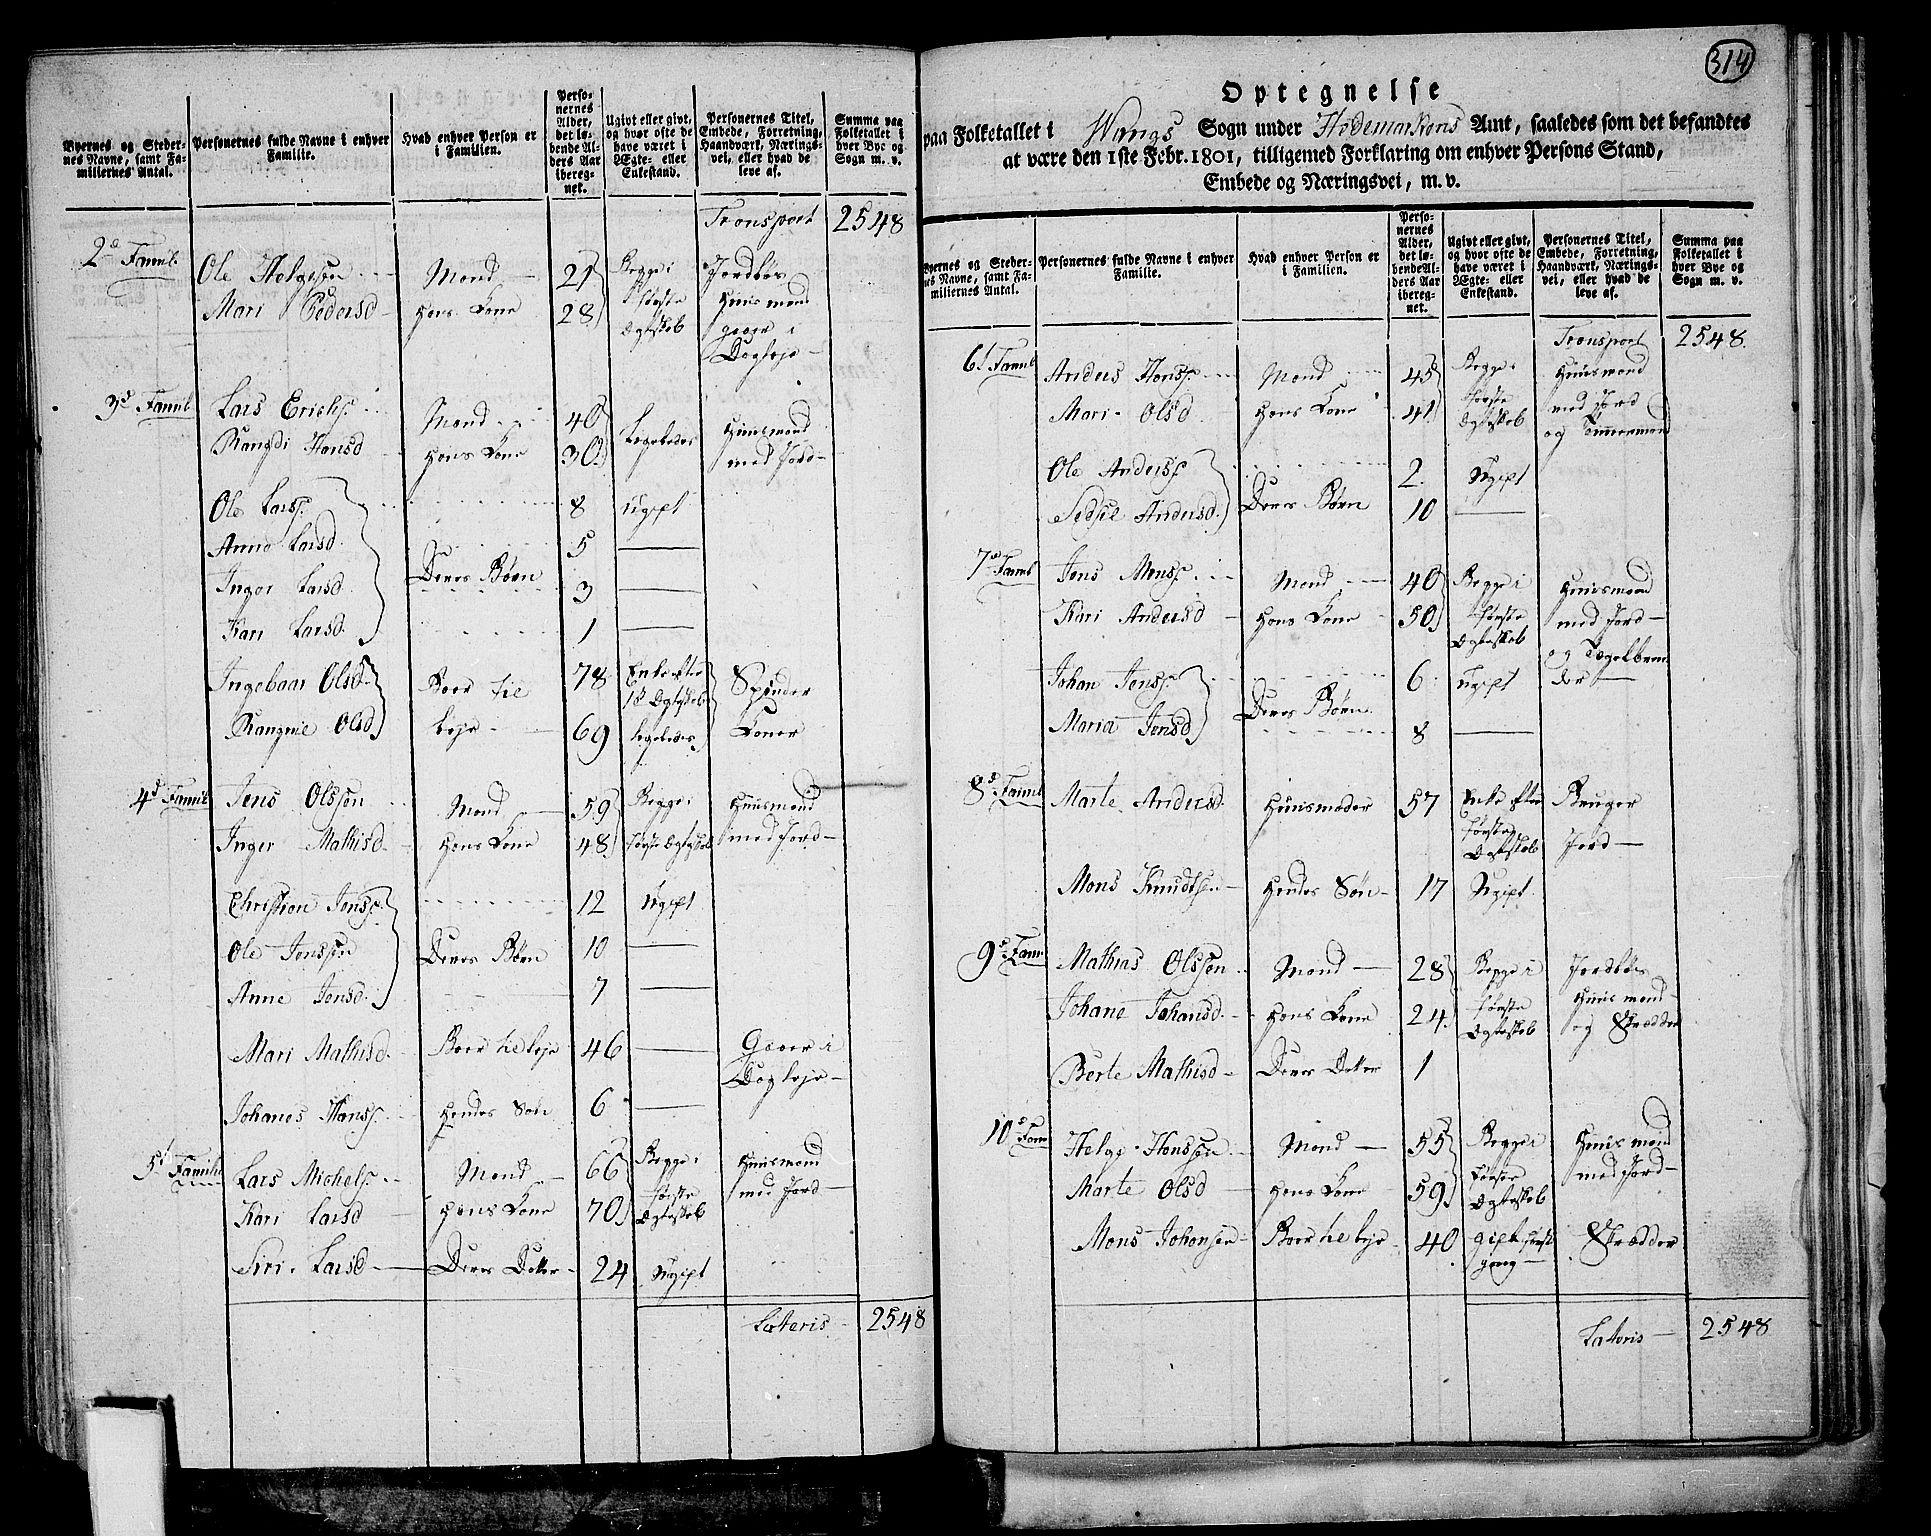 Byernes og Stedernes Navne, samt Familiernes Antal.
Personernes fulde Navne i enhver Familie.
Hvad enhver Person er i Familien.
Personernes Alder, det løbende Alders Aar iberegnet.
Ugivt eller givt, og hvor ofte de have været i Ægte- eller Enkestand.
Personernes Titel, Embede, Forretning, Haandværk, Næringsvei, eller hvad de leve af.
Summa paa Folketallet i hver Bye og Sogn m. v.
Transport 2548
2d Famil.
Ole Helgesen Mand 21 Begge i Jordløs
Mari Pedersd Hans Kone 28 første Huusmand
Ægteskab gaaer i
Dagleje
3d Famil
Lars Erichs. Mand 40 Ligeledes Huusmand
Rangdi Hansd Hans Kone 30 med Jord
Ole Larss. 8 Ugipt
Anne Larsd. 5
Inger Larsd. Deres Børn 3
Kari Larsd. 1
Ingebaar Olsd. Boer til 78 Enke efter Spinder
1s Ægteskab
Rangnie Olsd leje 69 ligeledes Koner
4d Famil
Jens Olssen Mand 59 Begge i Huusmand
Inger Mathisd Hans Kone 48 første Ægteskab med Jord
Christian Jenss. 12 Ugipt
Ole Jenssen Deres Børn 10
Anne Jensd. 7
Mari Mathisd. Boer til leje 46 Gaaer i
Dagleje
Johanes Hanss. Hendes Søn 6
5t Familie
Lars Michels. Mand 66 Begge i Huusmand
Kari Larsd Hans Kone 70 første med Jord
Ægteskab
Siri Larsd Deres Datter 24 Ugipt
Lateris 2548
314
Optegnelse
paa Folketallet i Wangs Sogn under Hedemarkens Amt, saaledes som det befandtes
at være den 1ste Febr. 1801, tilligemed Forklaring om enhver Persons Stand,
Embede og Næringsvei, m. v.
Byernes og Stedernes Navne, samt Familiernes Antal.
Personernes fulde Navne i enhver Familie.
Hvad enhver Person er i Familien.
Personernes Alder, det løbende Alders Aar iberegnet.
Ugivt eller givt, og hvor ofte de have været i Ægte- eller Enkestand.
Personernes Titel, Embede, Forretning, Haandværk, Næringsvei, eller hvad de leve af.
Summa paa Folketallet i hver Bye og Sogn m. v.
Transport 2548.
6t Famil
Anders Hanss. Mand 45 Begge i Huusmand
Mari Olsd Hans Kone 41 første med Jord
Ægteskab og Tømmermand
Ole Anderss. 2. Ugipt
Sedsel Andersd. Deres Børn 10
7d Famil
Jens Monss. Mand 40 Begge i Huusmand
Kari Andersd Hans Kone 50 første med Jord
Ægteskab og Tegelbrænder
Johan Jenss. 6 Ugipt
Maria Jensd Deres Børn 8
8d Famil
Marte Andersd. Huusmoder 57 Enke efter Bruger
første Ægteskab Jord
Mons Knudtsen Hendes Søn 17 Ugipt
9d Famil
Mathias Olssen Mand 28 Begge i Jordløs
Johane Johansd. Hans Kone 24 første Huusmand
Ægteskab og Skrædder
Berte Mathisd Deres Datter 1
10d Famil
Helge Hanssen Mand 55 Begge i Huusmand
Marte Olsd Hans Kone 59 første med Jord
Ægteskab
Mons Johansen Boer til leje 40 gipt første Skrædder
gang
Lateris 2548